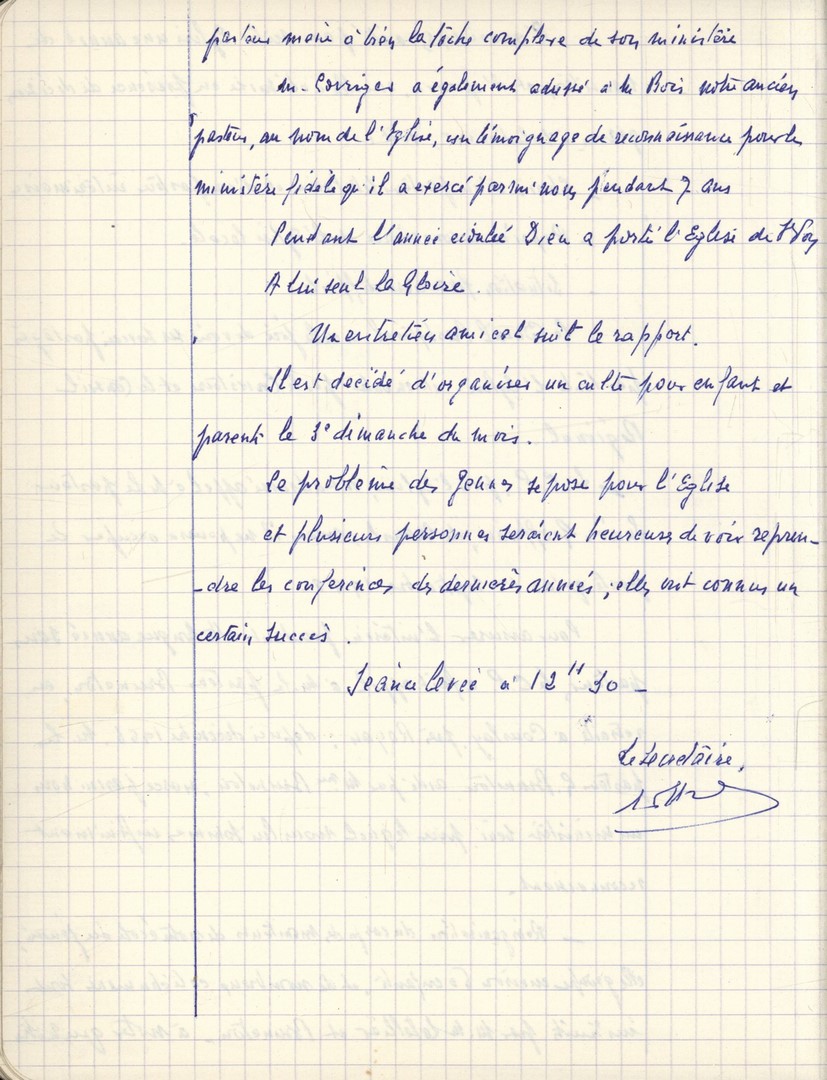 pasteur mène à bien la tâche complexe de son ministère
M. Corriger a également adressé à M. Bois notre ancien
pasteur, au nom de l'Eglise, un témoignage de reconnaissance pour le
ministère fidèle qu'il a exercé parmi nous pendant 7 ans
Pendant l'année écoulée Dieu a porté l'Eglise de
A Lui seul la Gloire.
Un entretien amical suit le rapport.
Il est décidé d'organiser un culte pour enfant et
parents le 3e dimanche du mois.
Le problème des Jeunes se pose pour l'Eglise
et plusieurs personnes seraient heureuses de voir repren-
-dre les conférences des dernières années ; elles ont connus un
certain succès.
Séance levée à 12H 30 -
Le secrétaire,